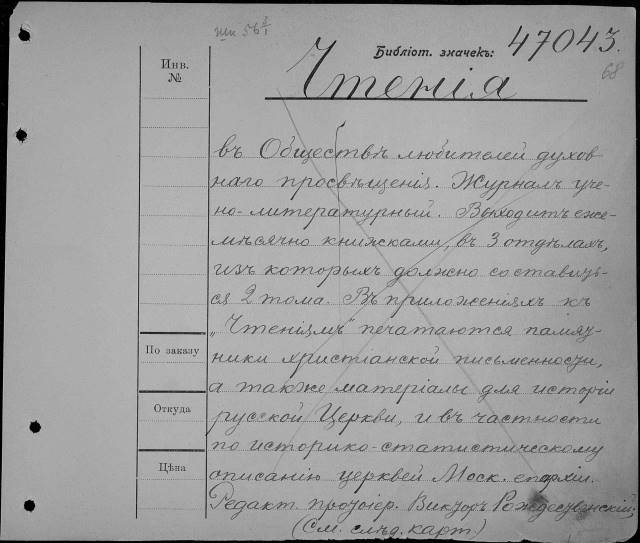 шк 56 3/1
Библіот. значекъ: 47043.
68
Инв.
№
Чтенія
въ Обществѣ любителей духов
наго просвѣщенія. Журналъ уче-
но-литературный. Выходитъ еже-
мѣсячно книжками, въ 3 отдѣлахъ,
изъ которыхъ должно составить-
ся 2 тома. Въ приложеніяхъ къ
„Чтеніямъ" печатаются памят-
По заказу
ники христіанской письменности,
а также матеріалы для исторіи
Откуда
русской Церкви, и въ частности
по историко-статистическому
Цѣна
описанію церквей Моск. епархіи.
Редакт. протоіер. Викторъ Рождественскій;
(См. слѣд. карт.)